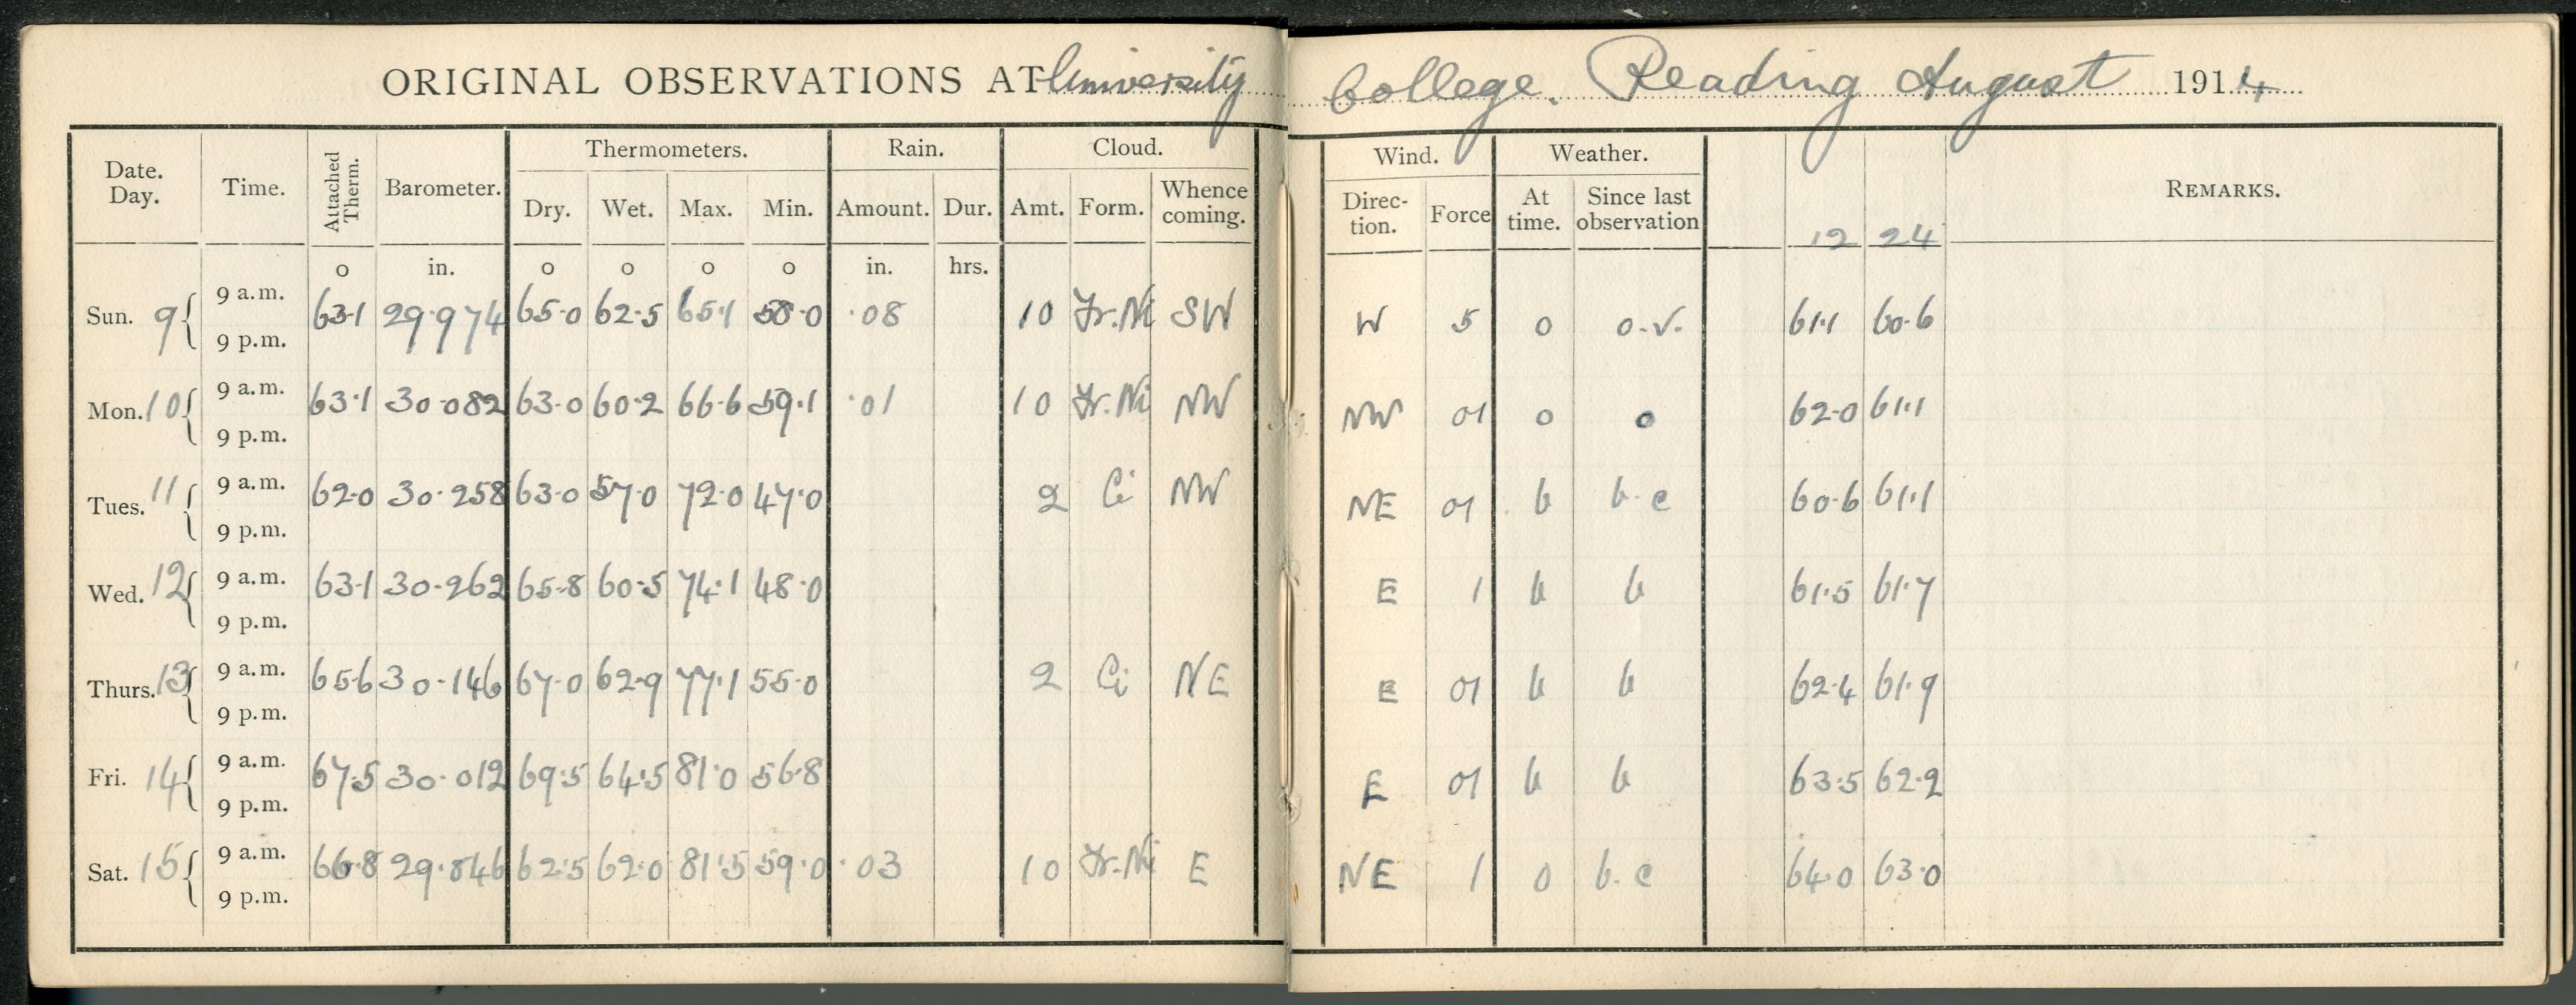 ORIGINAL OBSERVATIONS AT University College. Reading August 1914
Thermometers. Rain. Cloud. Wind. Weather.
Date. Day. Time. Attached Therm. Barometer. Dry. Wet. Max. Min. Amount. Dur. Amt. Form. Whence coming. Direc-tion. Force At time. Since last observation 12 24 REMARKS.
o in. o o o o in. hrs.
Sun. 9 9 a.m. 63.1 29.974 65.0 62.5 65.1 58.0 .08 10 Fr.Ni SW W 5 o o.v. 61.1 60.6
9 p.m.
Mon. 10 9 a.m. 63.1 30.082 63.0 60.2 66.6 59.1 .01 10 Fr.Ni NW NW 01 o o 62.0 61.1
9 p.m.
Tues. 11 9 a.m. 62.0 30.258 63.0 57.0 72.0 47.0 2 Ci NW NE 01 b b.c 60.6 61.1
9 p.m.
Wed. 12 9 a.m. 63.1 30.262 65.8 60.5 74.1 48.0 E 1 b b 61.5 61.7
9 p.m.
Thurs. 13 9 a.m. 65.6 30.146 67.0 62.9 77.1 55.0 2 Ci NE E 01 b b 62.4 61.9
9 p.m.
Fri. 14 9 a.m. 67.5 30.012 69.5 64.5 81.0 56.8 E 01 b b 63.5 62.2
9 p.m.
Sat. 15 9 a.m. 66.8 29.846 62.5 62.0 81.5 59.0 .03 10 Fr.Ni E NE 1 o b.c 64.0 63.0
9 p.m.